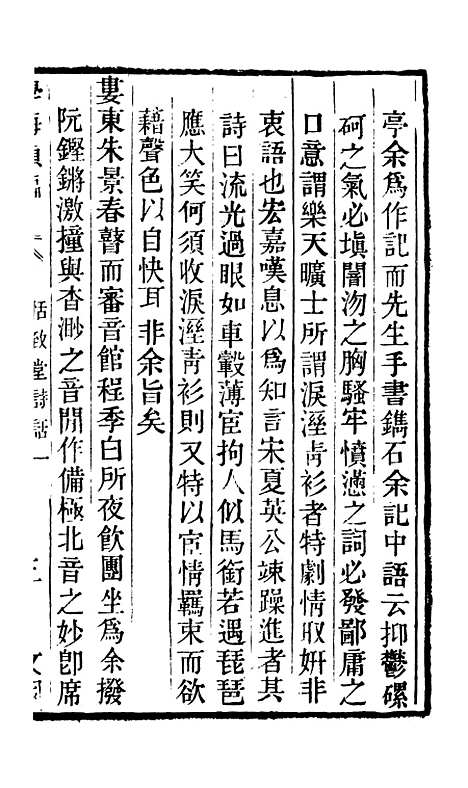 亭余爲作記而先生手書鐫石余記中語云抑鬱磥
砢之氣必塡闇沕之胸騷牢憤懣之詞必發鄙庸之
口意謂樂天曠士所謂淚溼靑衫者特劇情取姸非
衷語也宏嘉嘆息以爲知言宋夏英公竦躁進者其
詩曰流光過眼如車轂薄宦拘人似馬銜若遇琵琶
應大笑何須收淚溼靑衫則又特以宦情羈束而欲
藉聲色以自快耳非余旨矣
婁東朱景春瞽而審音館程季白所夜飮團坐爲余撥
阮鏗鏘激撞與杳渺之音閒作備極北音之妙卽席
學海類編
恬致堂詩話一
三